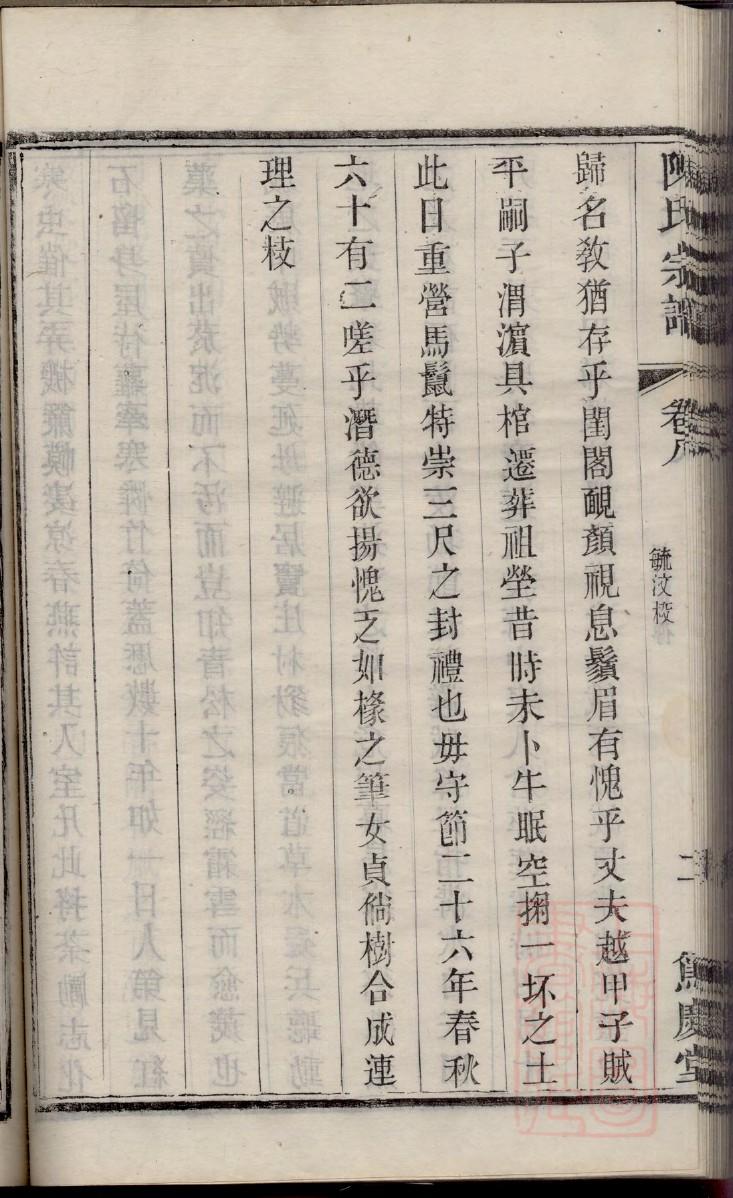 陳氏宗譜
卷八
毓汶校
二
慶堂
歸名教猶存乎閨閣靦顏視息鬚眉有愧乎丈夫越甲子賊
平嗣子渭濵具棺遷葬祖塋昔時未卜牛眠空掬一坏之土
此日重營馬鬣特崇三尺之封禮也毋守節二十六年春秋
六十有二嗟乎潛德欲揚愧乏如椽之筆女貞倘樹合成連
理之枝